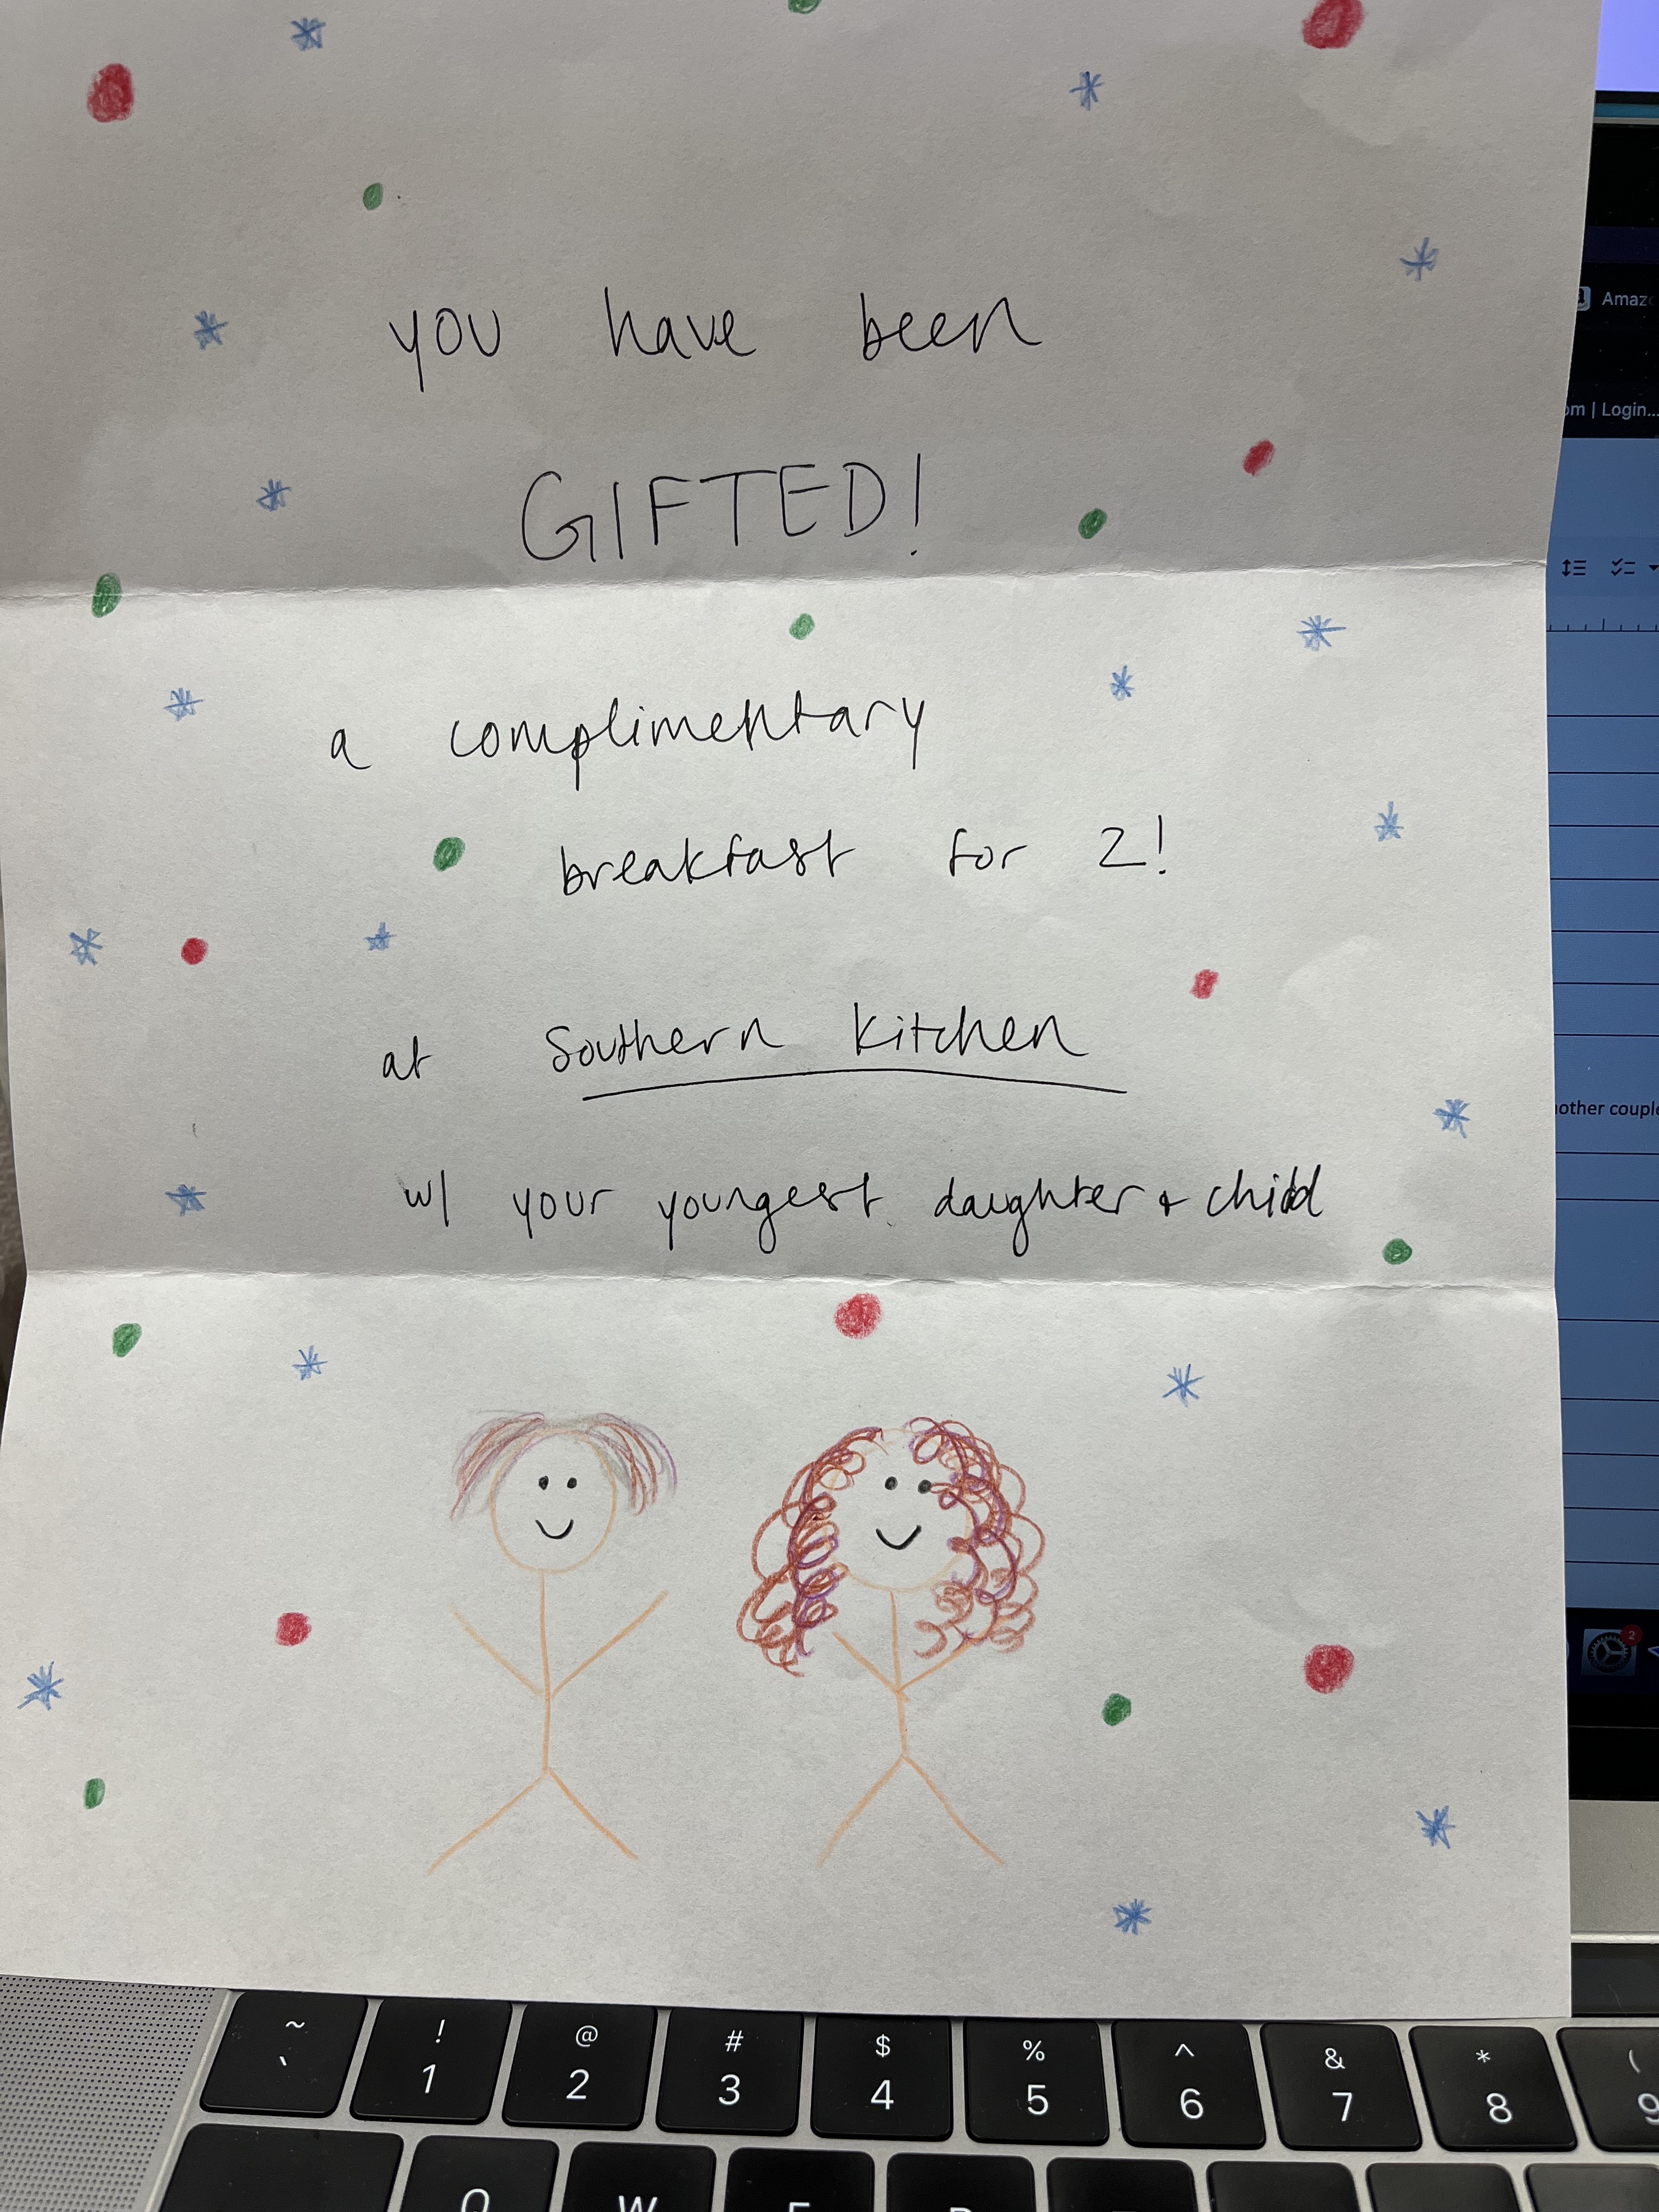 you have been
GIFTED!
a complimentary
breakfast for 2!
at Southern Kitchen
w/ your youngest daughter & child
Amaz
om | Login...
other couple
2
~ ! @ # $ % ^ & * (
` 1 2 3 4 5 6 7 8 9
Q W E R